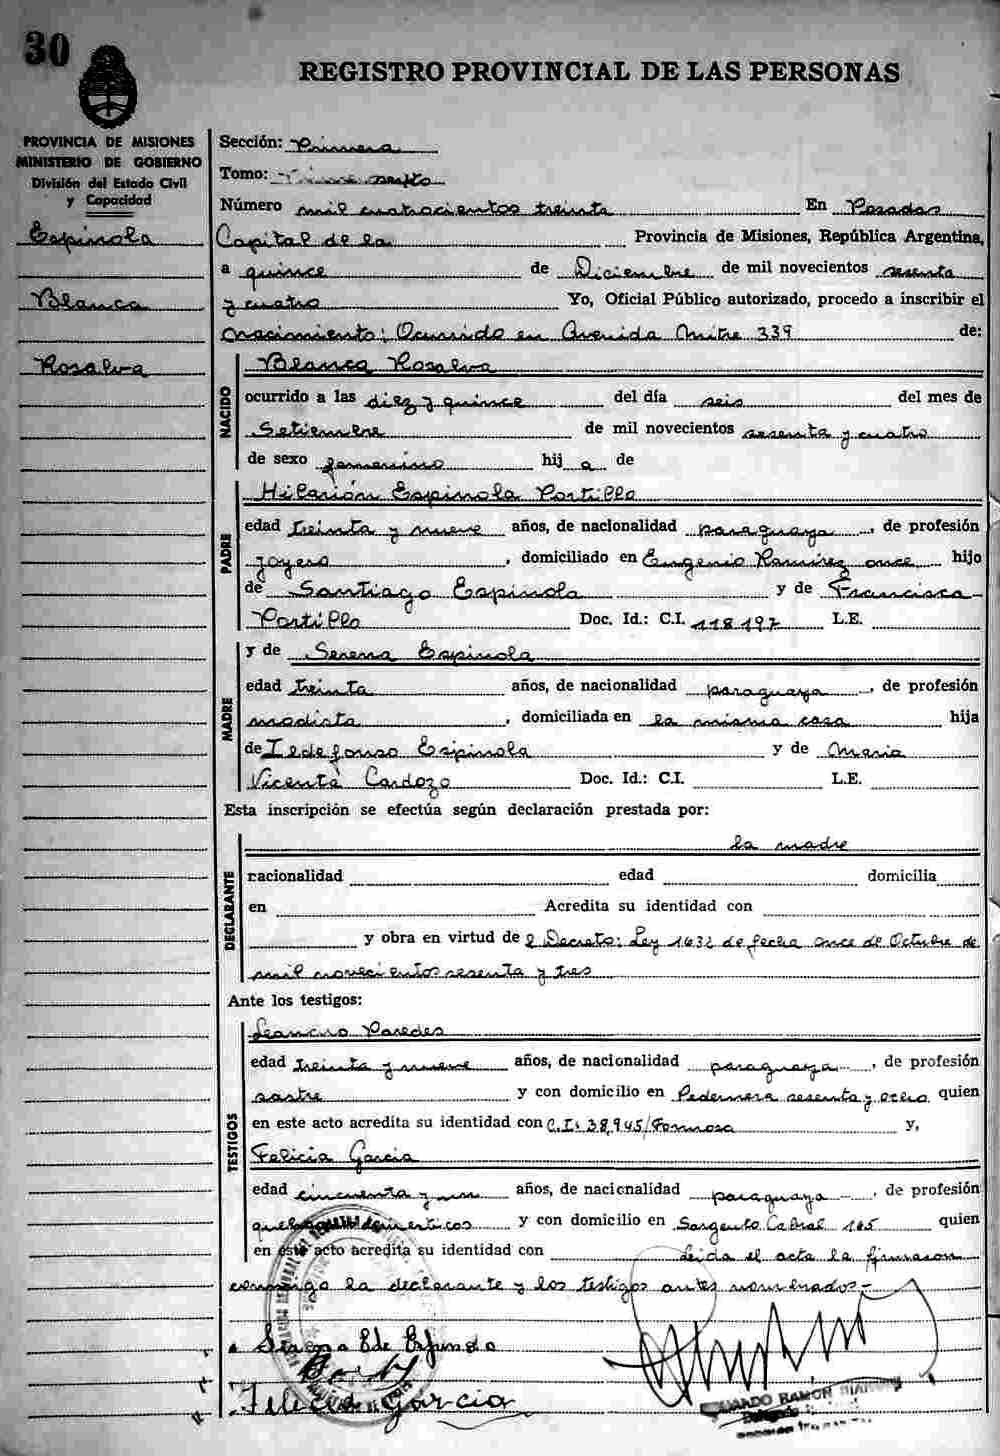 30
REGISTRO PROVINCIAL DE LAS PERSONAS
PROVINCIA DE MISIONES
MINISTERIO DE GOBIERNO
División del Estado Civil
y Capacidad
Espinola
Blanca
Rosalva
Sección: Primera
Tomo: sexto
Número mil cuatrocientos treinta En Posadas
Capital de la Provincia de Misiones, República Argentina,
a quince de Diciembre de mil novecientos sesenta
y cuatro Yo, Oficial Público autorizado, procedo a inscribir el
nacimiento: Ocurrido en Avenida Mitre 339 de:
NACIDO
Blanca Rosalva
ocurrido a las diez y quince del día seis del mes de
Setiembre de mil novecientos sesenta y cuatro
de sexo femenino hij a de
PADRE
Hilarión Espinola Portillo
edad treinta y nueve años, de nacionalidad paraguaya, de profesión
joyero, domiciliado en Eugenio Ramirez once hijo
de Santiago Espinola y de Francisca
Portillo Doc. Id.: C.I. 118197 L.E.
MADRE
y de Serena Espinola
edad treinta años, de nacionalidad paraguaya, de profesión
modista, domiciliada en la misma casa hija
de Ildefonso Espinola y de Maria
Vicenta Cardozo Doc. Id.: C.I. L.E.
Esta inscripción se efectúa según declaración prestada por:
DECLARANTE
la madre
nacionalidad edad domicilia
en Acredita su identidad con
y obra en virtud de l Decreto: Ley 1632 de fecha once de Octubre de
mil novecientos sesenta y tres
Ante los testigos:
TESTIGOS
Leandro Paredes
edad treinta y nueve años, de nacionalidad paraguaya, de profesión
sastre y con domicilio en Pedernera sesenta y ocho quien
en este acto acredita su identidad con C.I: 38,945/Formosa y,
Felicia Garcia
edad cincuenta y un años, de nacionalidad paraguaya, de profesión
domesticos y con domicilio en Sargento Cabral 165 quien
en este acto acredita su identidad con Leida el acta la firmaron
conmigo la declarante y los testigos antes nombrados-
Serena
Felicia Garcia
RAMON